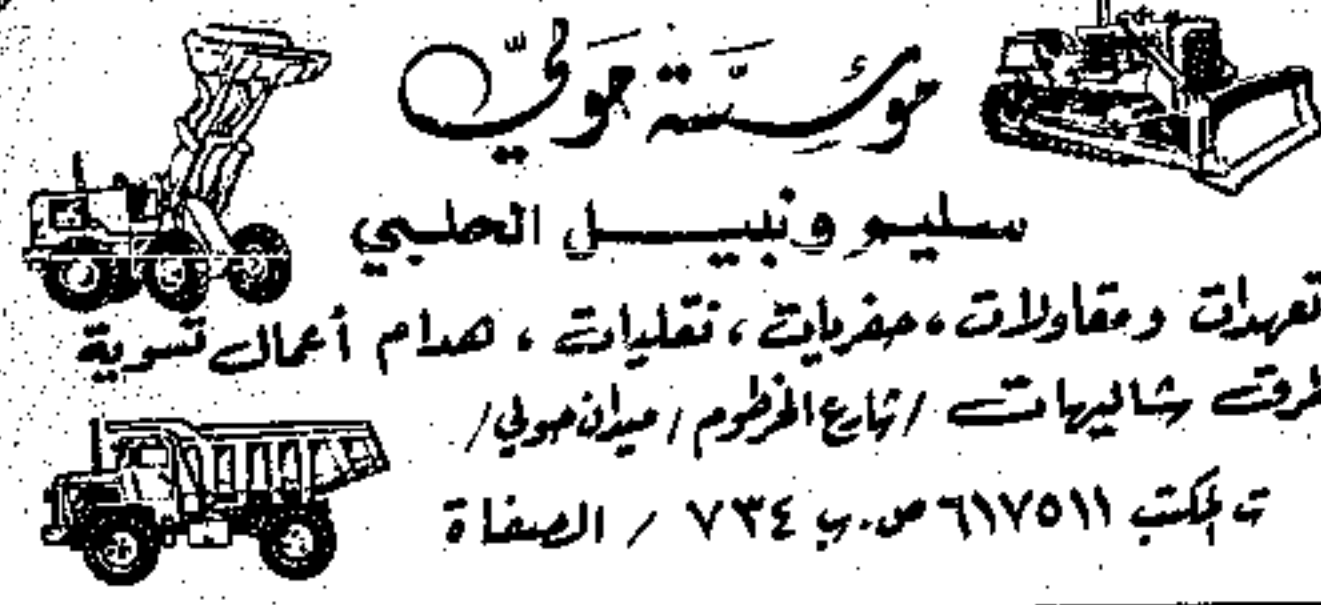 مؤسسة حولي
سليم ونبيل الحلبي
تعهدات ومقاولات، حفريات، نقليات، هدام أعمال تسوية
طرق شاليهات / شارع الخرطوم / ميدان حولي /
ت المكتب ٦١٧٥١١ ص.ب ٧٣٤ / الصفاة